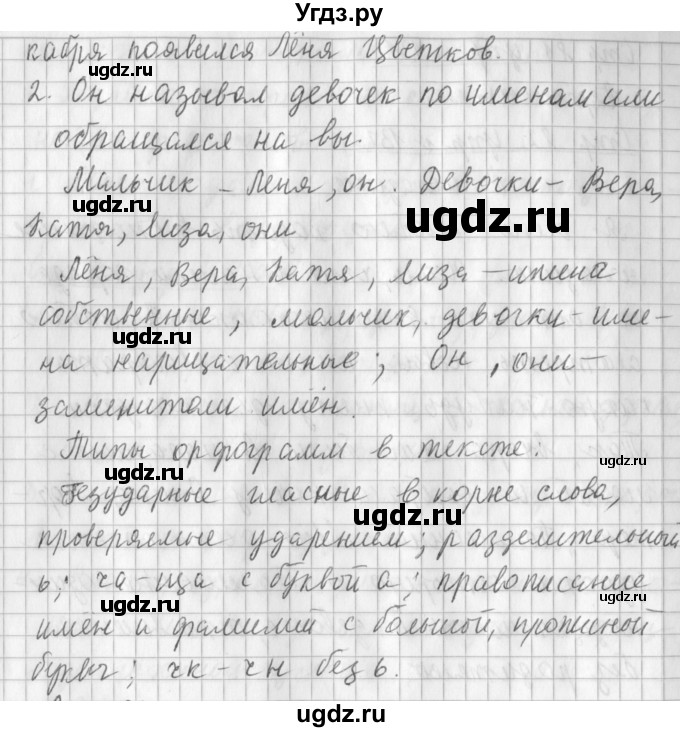 Угдз.ру
кабря появился Лёня Цветков.
2. Он называл девочек по именам или
обращался на вы.
Мальчик – Лёня, он. Девочки – Вера,
Катя, Лиза, они
Лёня, Вера, Катя, Лиза – имена
собственные, мальчик, девочки – име-
на нарицательные; Он, они –
заменители имён.
Типы орфограмм в тексте:
безударные гласные в корне слова,
проверяемые ударением; разделительный
ь; ча-ща с буквой а; правописание
имён и фамилий с большой, прописной
буквы; чк – чн без ь.
ugdz.ru
ugdz.ru
ugdz.ru
ugdz.ru
ugdz.ru
ugdz.ru
ugdz.ru
ugdz.ru
ugdz.ru
ugdz.ru
ugdz.ru
ugdz.ru
ugdz.ru